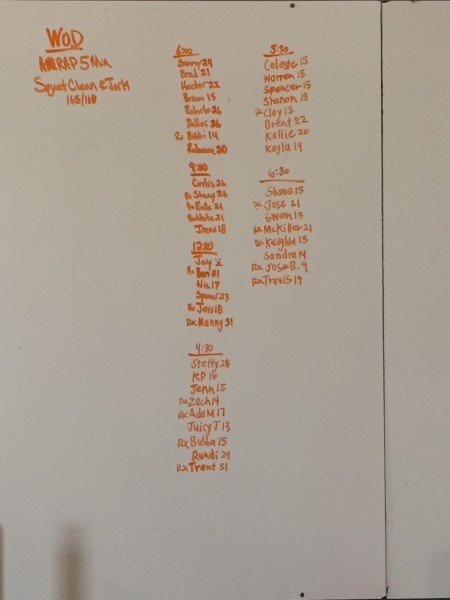 WOD
AMRAP 5 Min
Squat Clean & Jerk
165/110
6:00
Danny 24
Brad 21
Hector 22
Brian 15
Roberto 26
Dallas 26
Rx Bobbi 14
Rebecca 20
9:00
Curtis 26
Rx Stacy 26
Rx 21
Rx 21
Irene 18
12:00
Jay
Rx Ben 21
Nic 17
Spencer 23
Rx Jess 18
Rx Manny 31
4:30
Steffy 28
KP 16
Jenn 15
Rx Zach 14
Rx Adam 17
Juicy J 13
Rx Bubba 15
Rundi 24
Rx Trent 31
5:30
Celeste 15
Warren 15
Spencer 15
Shanon 18
Rx Clay 13
Brent 22
Kallie 20
Kayla 14
6:30
Shane 15
Rx Jose 21
Gwen 15
Rx McKiller 21
Rx Keighla 15
Sandra 14
Rx Jose B. 9
Rx Travis 19